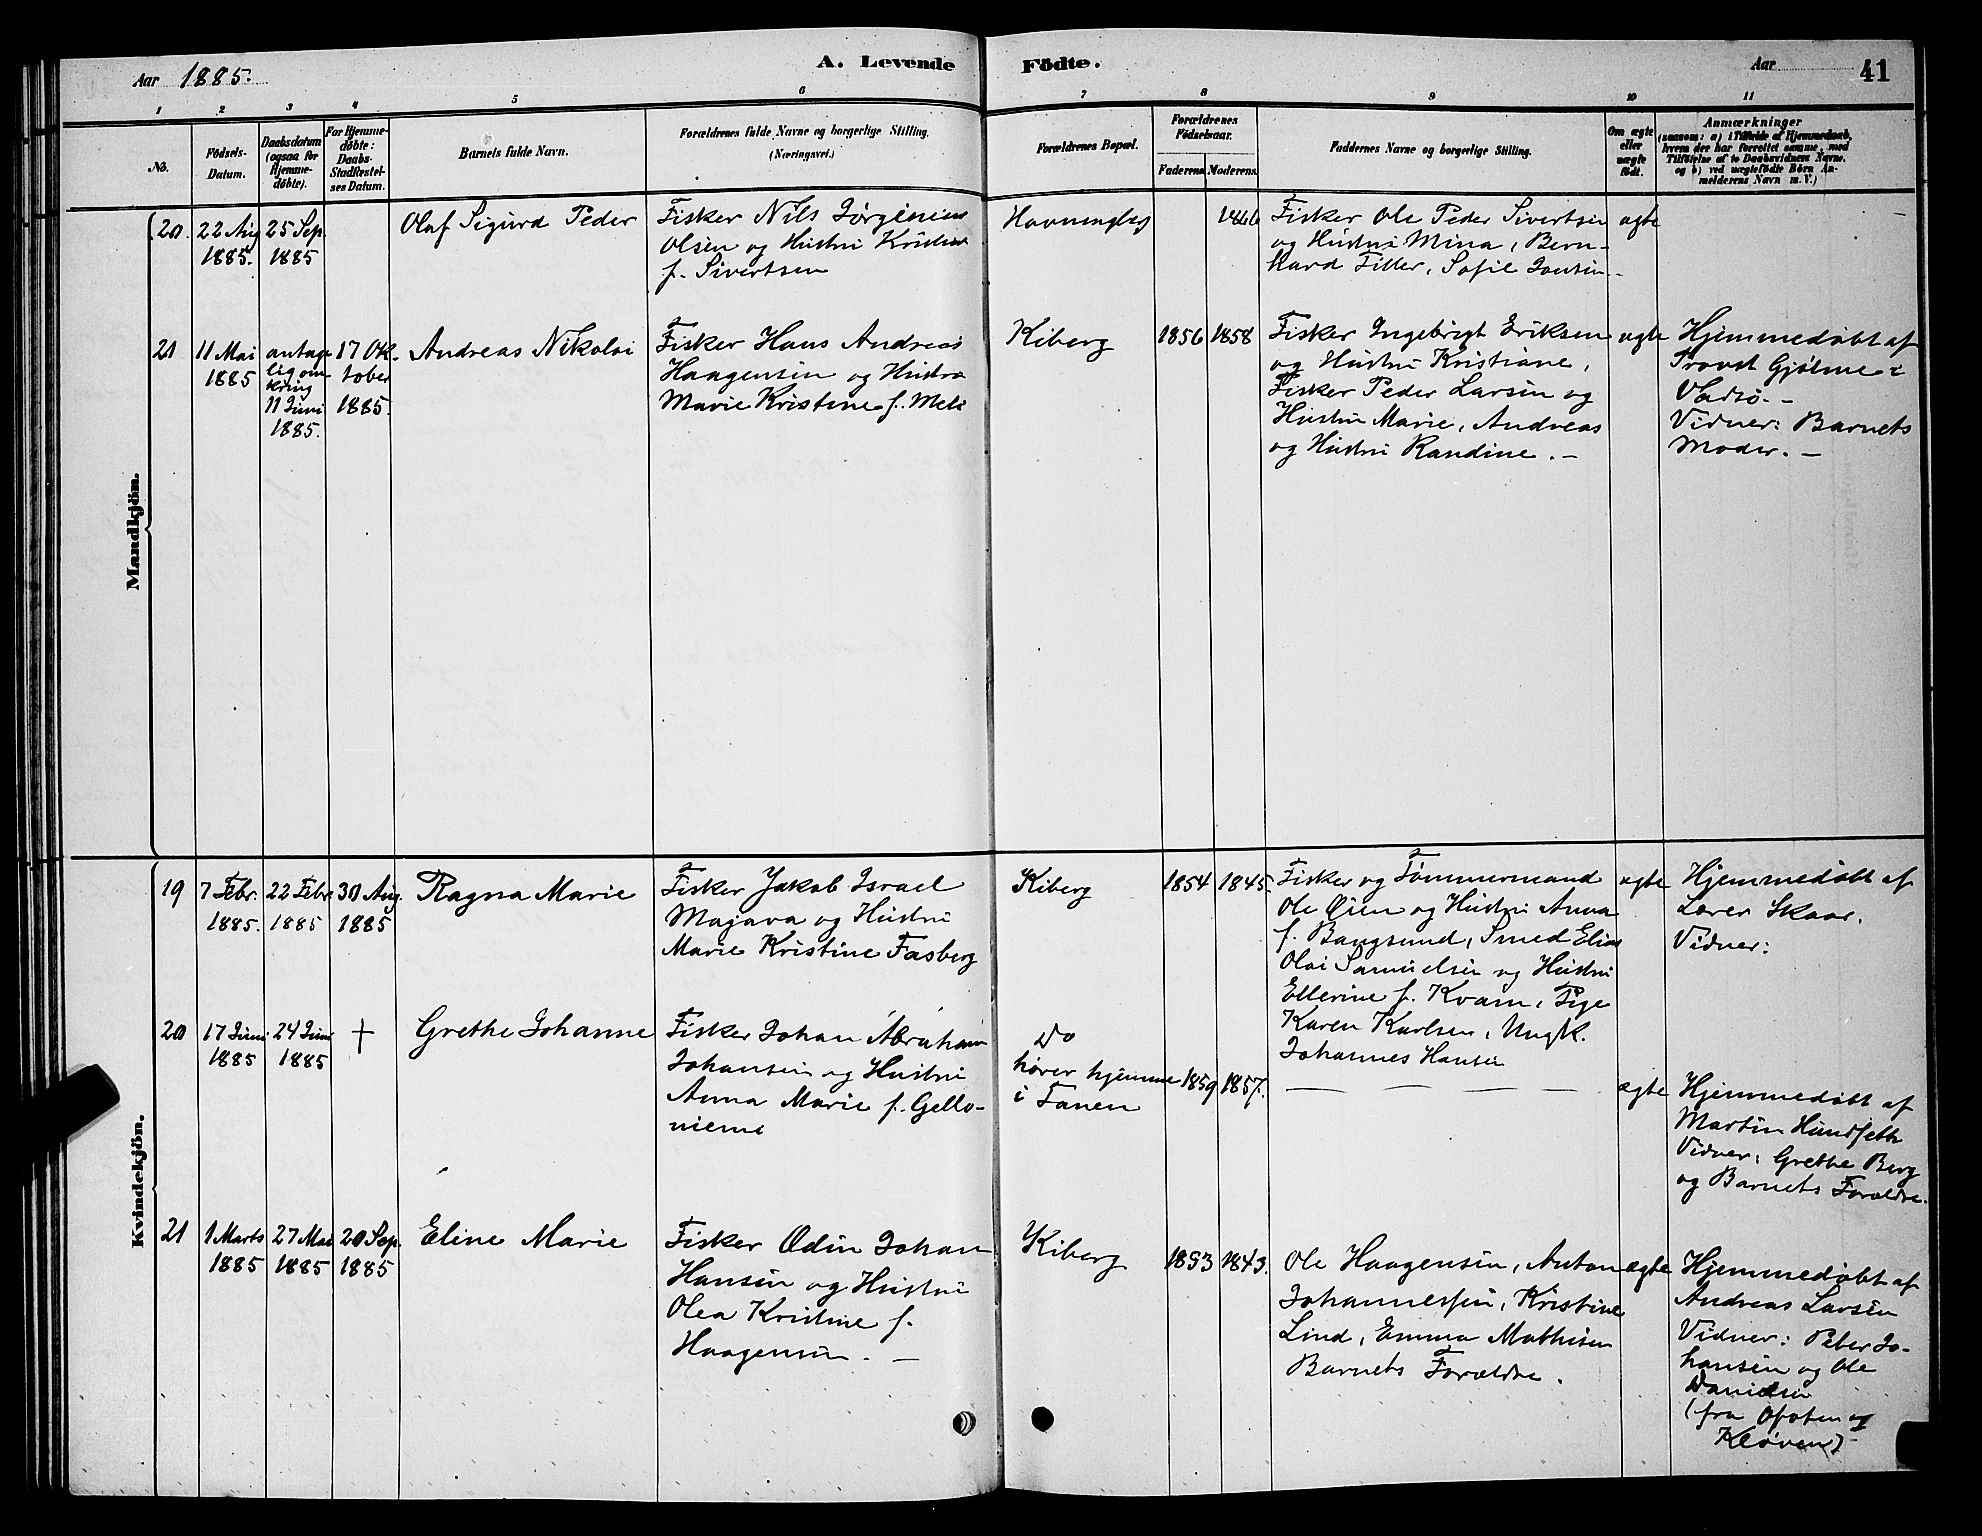 Aar 1885.
A. Levende Födte.
Aar
41
1 2 3 4 5 6 7 8 9 10 11
No.
Födsels-
Datum.
Daabsdatum
(ogsaa for
Hjemme-
döbte).
For Hjemme-
döbte:
Daabs-
Stadfæstel-
ses Datum.
Barnets fulde Navn.
Forældrenes fulde Navne og borgerlige Stilling.
(Næringsvei.)
Forældrenes Bopæl.
Forældrenes
Födselsaar.
Faderens. Moderens.
Faddernes Navne og borgerlige Stilling.
Om ægte
eller
uægte
födt.
Anmærkninger
(saasom: a) i Tilfælde af Hjemmedaab,
hvem der har forrettet samme, med
Tilföielse af to Daabsvidners Navne,
og b) ved uægtefödte Börn An-
melderens Navn m. V.)
Mandkjön.
20.
22 Aug
1885.
25 Sep.
1885
Olaf Sigurd Peder
Fisker Nils
Olsen og Hustru
f. Sivertsen
1846
Fisker Ole Peder Sivertsen
og Hustru Mina, Bern-
hard Filler, Sofie
ægte
21
11 Mai
1885
antage
lig om-
kring
11 Juni
1885.
17 Ok-
tober
1885.
Andreas Nikolai
Fisker Hans Andreas
Haagensen og Hustru
Marie Kristine f.
Kiberg
1856
1858
Fisker Ingebrigt Eriksen
og Hustru Kristiane,
Fisker Peder Larsen og
Hustru Marie, Andreas
og Hustru Randine. –
ægte
Hjemmedøbt af
Provst Gjølme i
Vadsø. –
Vidner: Barnets
Moder. –
Kvindekjön.
19
7 Febr.
1885.
22 Febr.
1885
30 Aug.
1885
Ragna Marie
Fisker Jakob Israel
Majava og Hustru
Marie Kristine Fasberg
Kiberg
1854
1845.
Fisker og Tømmermand
Ole Øien og Hustru Anna
f. Bangsund, Smed Elias
Olai Samuelsen og Hustru
Ellerine f. Kvam, Pige
Karen Karlsen, Ungk.
Johannes Hansen
ægte
Hjemmedøbt af
Lærer Skaar.
Vidner:
20
17 Juni
1885
24 Juni
1885
+
Grethe Johanne
Fisker Johan Abraham
Johansen og Hustru
Anna Marie f. Gello-
nieme
Do
hører hjemme
i Tanen
1859
1857.
— — — —
ægte
Hjemmedøbt af
Martin Hundseth
Vidner: Grethe Berg
og Barnets Forældre.
21
1 Marts
1885
27 Mai
1885
20 Sep.
1885
Eline Marie
Fisker Odin Johan
Hansen og Hustru
Olea Kristine f.
Haagensen. –
Kiberg
1853
1843.
Ole Haagensen, Anton
Johannessen, Kristine
Lind, Emma Mathisen
Barnets Forældre.
ægte
Hjemmedøbt af
Andreas Larsen
Vidner: Peter Jo-
hansen og Ole
Danielsen
(fra Ofoten og
Kløven)